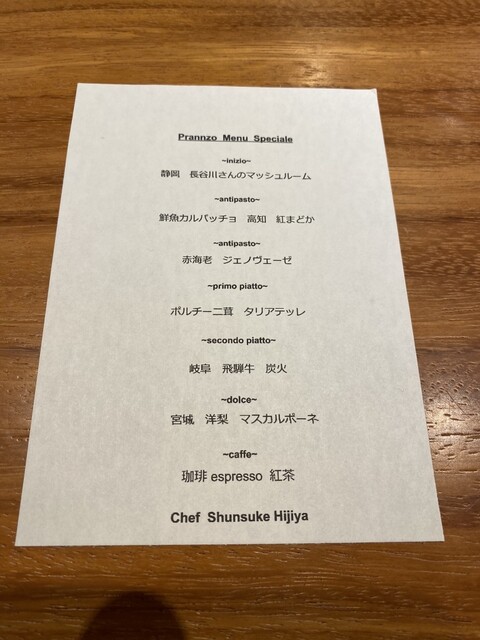 Prannzo Menu Speciale
~inizio~
静岡 長谷川さんのマッシュルーム
~antipasto~
鮮魚カルパッチョ 高知 紅まどか
~antipasto~
赤海老 ジェノヴェーゼ
~primo piatto~
ポルチーニ茸 タリアテッレ
~secondo piatto~
岐阜 飛騨牛 炭火
~dolce~
宮城 洋梨 マスカルポーネ
~caffe~
珈琲 espresso 紅茶
Chef Shunsuke Hijiya